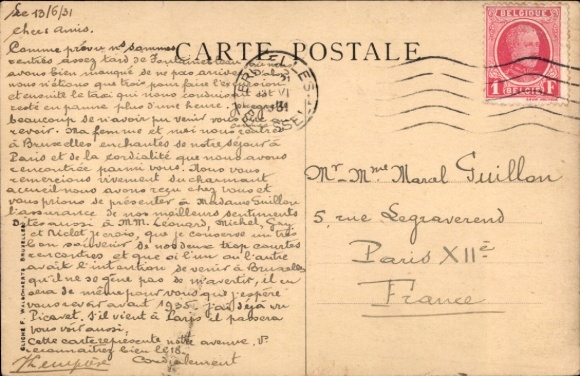 CARTE POSTALE
BELGIQUE
1 F
BELGIË
13/6/31
Chers amis.
Comme prévu ns sommes
rentrés assez tard de Fontainebleau
avons bien manqué de ne pas arriver
nous n'étions que trois pour faire l'excursion
et ensuite le taxi qui nous conduisait est
resté en panne plus d'une heure.
beaucoup de n'avoir pu venir vous dire au
revoir. Ma femme et moi nous rentrés
à Bruxelles enchantés de notre séjour à
Paris et de la cordialité que nous avons
rencontrée parmi vous. Nous vous
remercions vivement du charmant
accueil nous avons reçu chez vous et
vous prions de présenter à Madame Guillon
l'assurance de nos meilleurs sentiments
aussi à MM. Léonard, Michel,
et que je conserve un très
bon souvenir de nos deux trop courtes
rencontres et que si l'un ou l'autre
avait l'intention de venir à Bruxelles
qu'il ne se gêne pas de m'avertir, il en
sera de même pour vous que j'espère
vous revoir avant 1935. J'ai déjà vu
Picavet. S'il vient à Paris il passera
vous voir aussi.
Cette carte représente notre avenue.
reconnaîtrez bien le
Cordialement
Mr. Mme Marcel Guillon
5, rue Legraverend
Paris XIIè
France
CLICHÉ F. WALSCHAERTS BRUXELLES